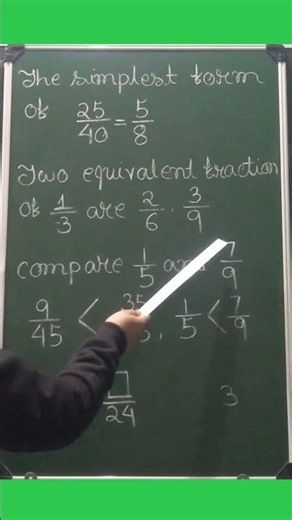 The simplest form
of 25/40 = 5/8
Two equivalent fraction
of 1/3 are 2/6 . 3/9
compare 1/5 and 7/9
9/45 < 35 , 1/5 < 7/9
24 3